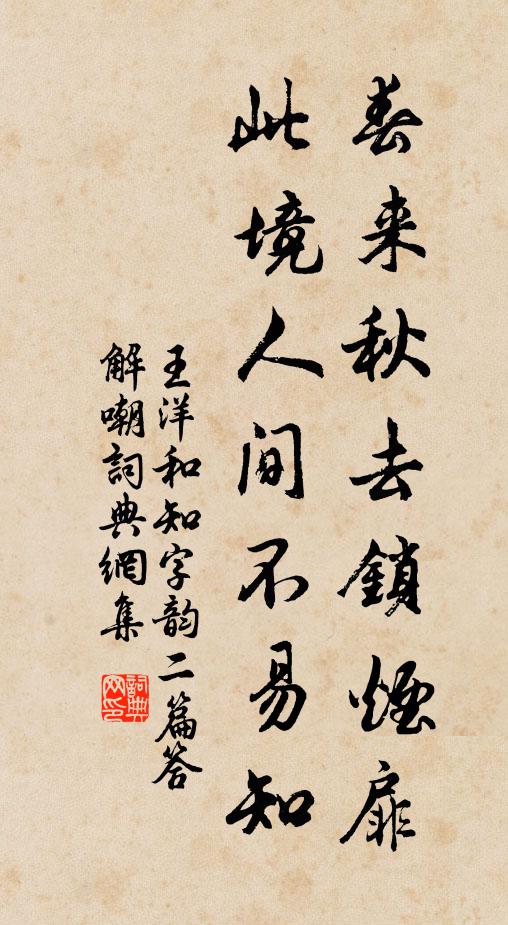 春来秋去鎖煙扉
此境人间不易知
王洋和知字韵二篇答
解嘲詞典網集
詞典网印